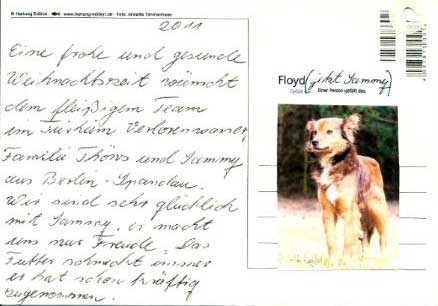 © Hartung Edition · www.hartung-edition.de · Foto: Annette Timmermann
2011
Eine frohe und gesunde
Weihnachtszeit wünscht
dem fleißigem Team
im Tierheim Verlorenwasser,
Familie Thöns und Sammy
aus Berlin-Spandau.
Wir sind sehr glücklich
mit Sammy, er macht
uns nur Freude. Das
Futter schmeckt immer
er hat schon kräftig
zugenommen.
Floyd (jetzt Sammy)
Einer Person gefällt das.